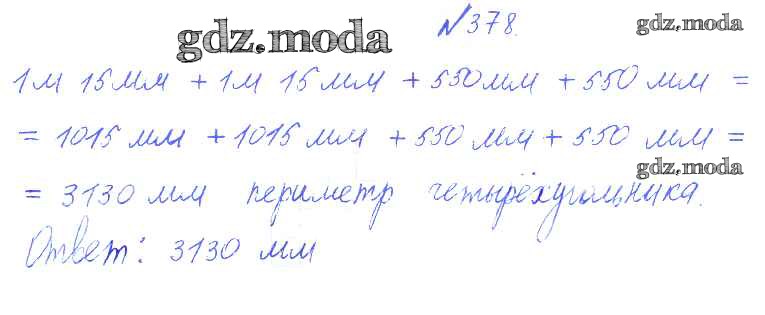 gdz.moda №378. gdz.moda
1м 15мм + 1м 15мм + 550мм + 550мм =
= 1015мм + 1015мм + 550мм + 550мм =
gdz.moda
= 3130мм периметр четырёхугольника.
Ответ: 3130мм